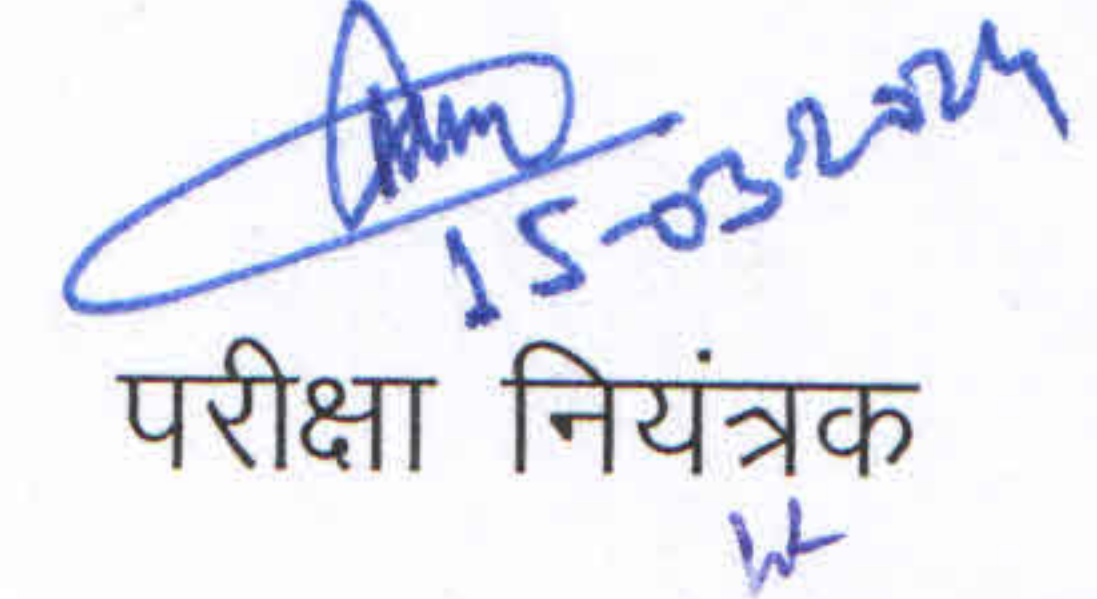 15-03-2024
परीक्षा नियंत्रक